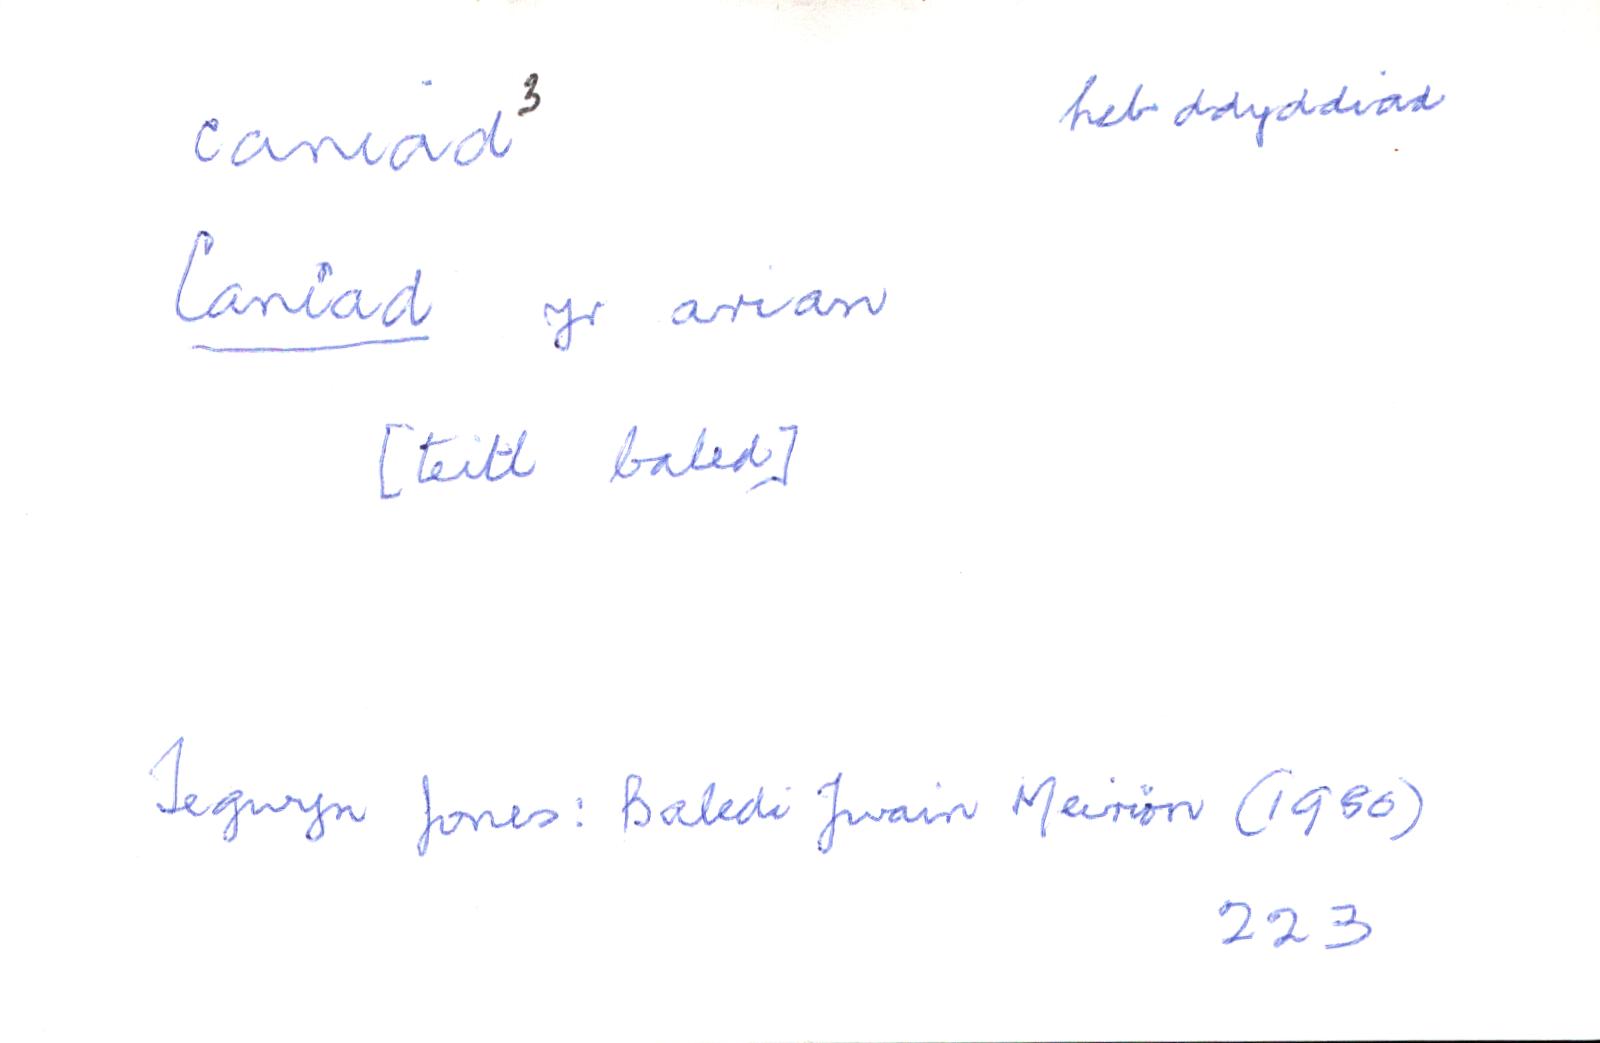 caniad³ heb ddyddiad
Caniad yr arian
[teitl baled]
Tegwyn Jones: Baledi Ywain Meirion (1980)
223